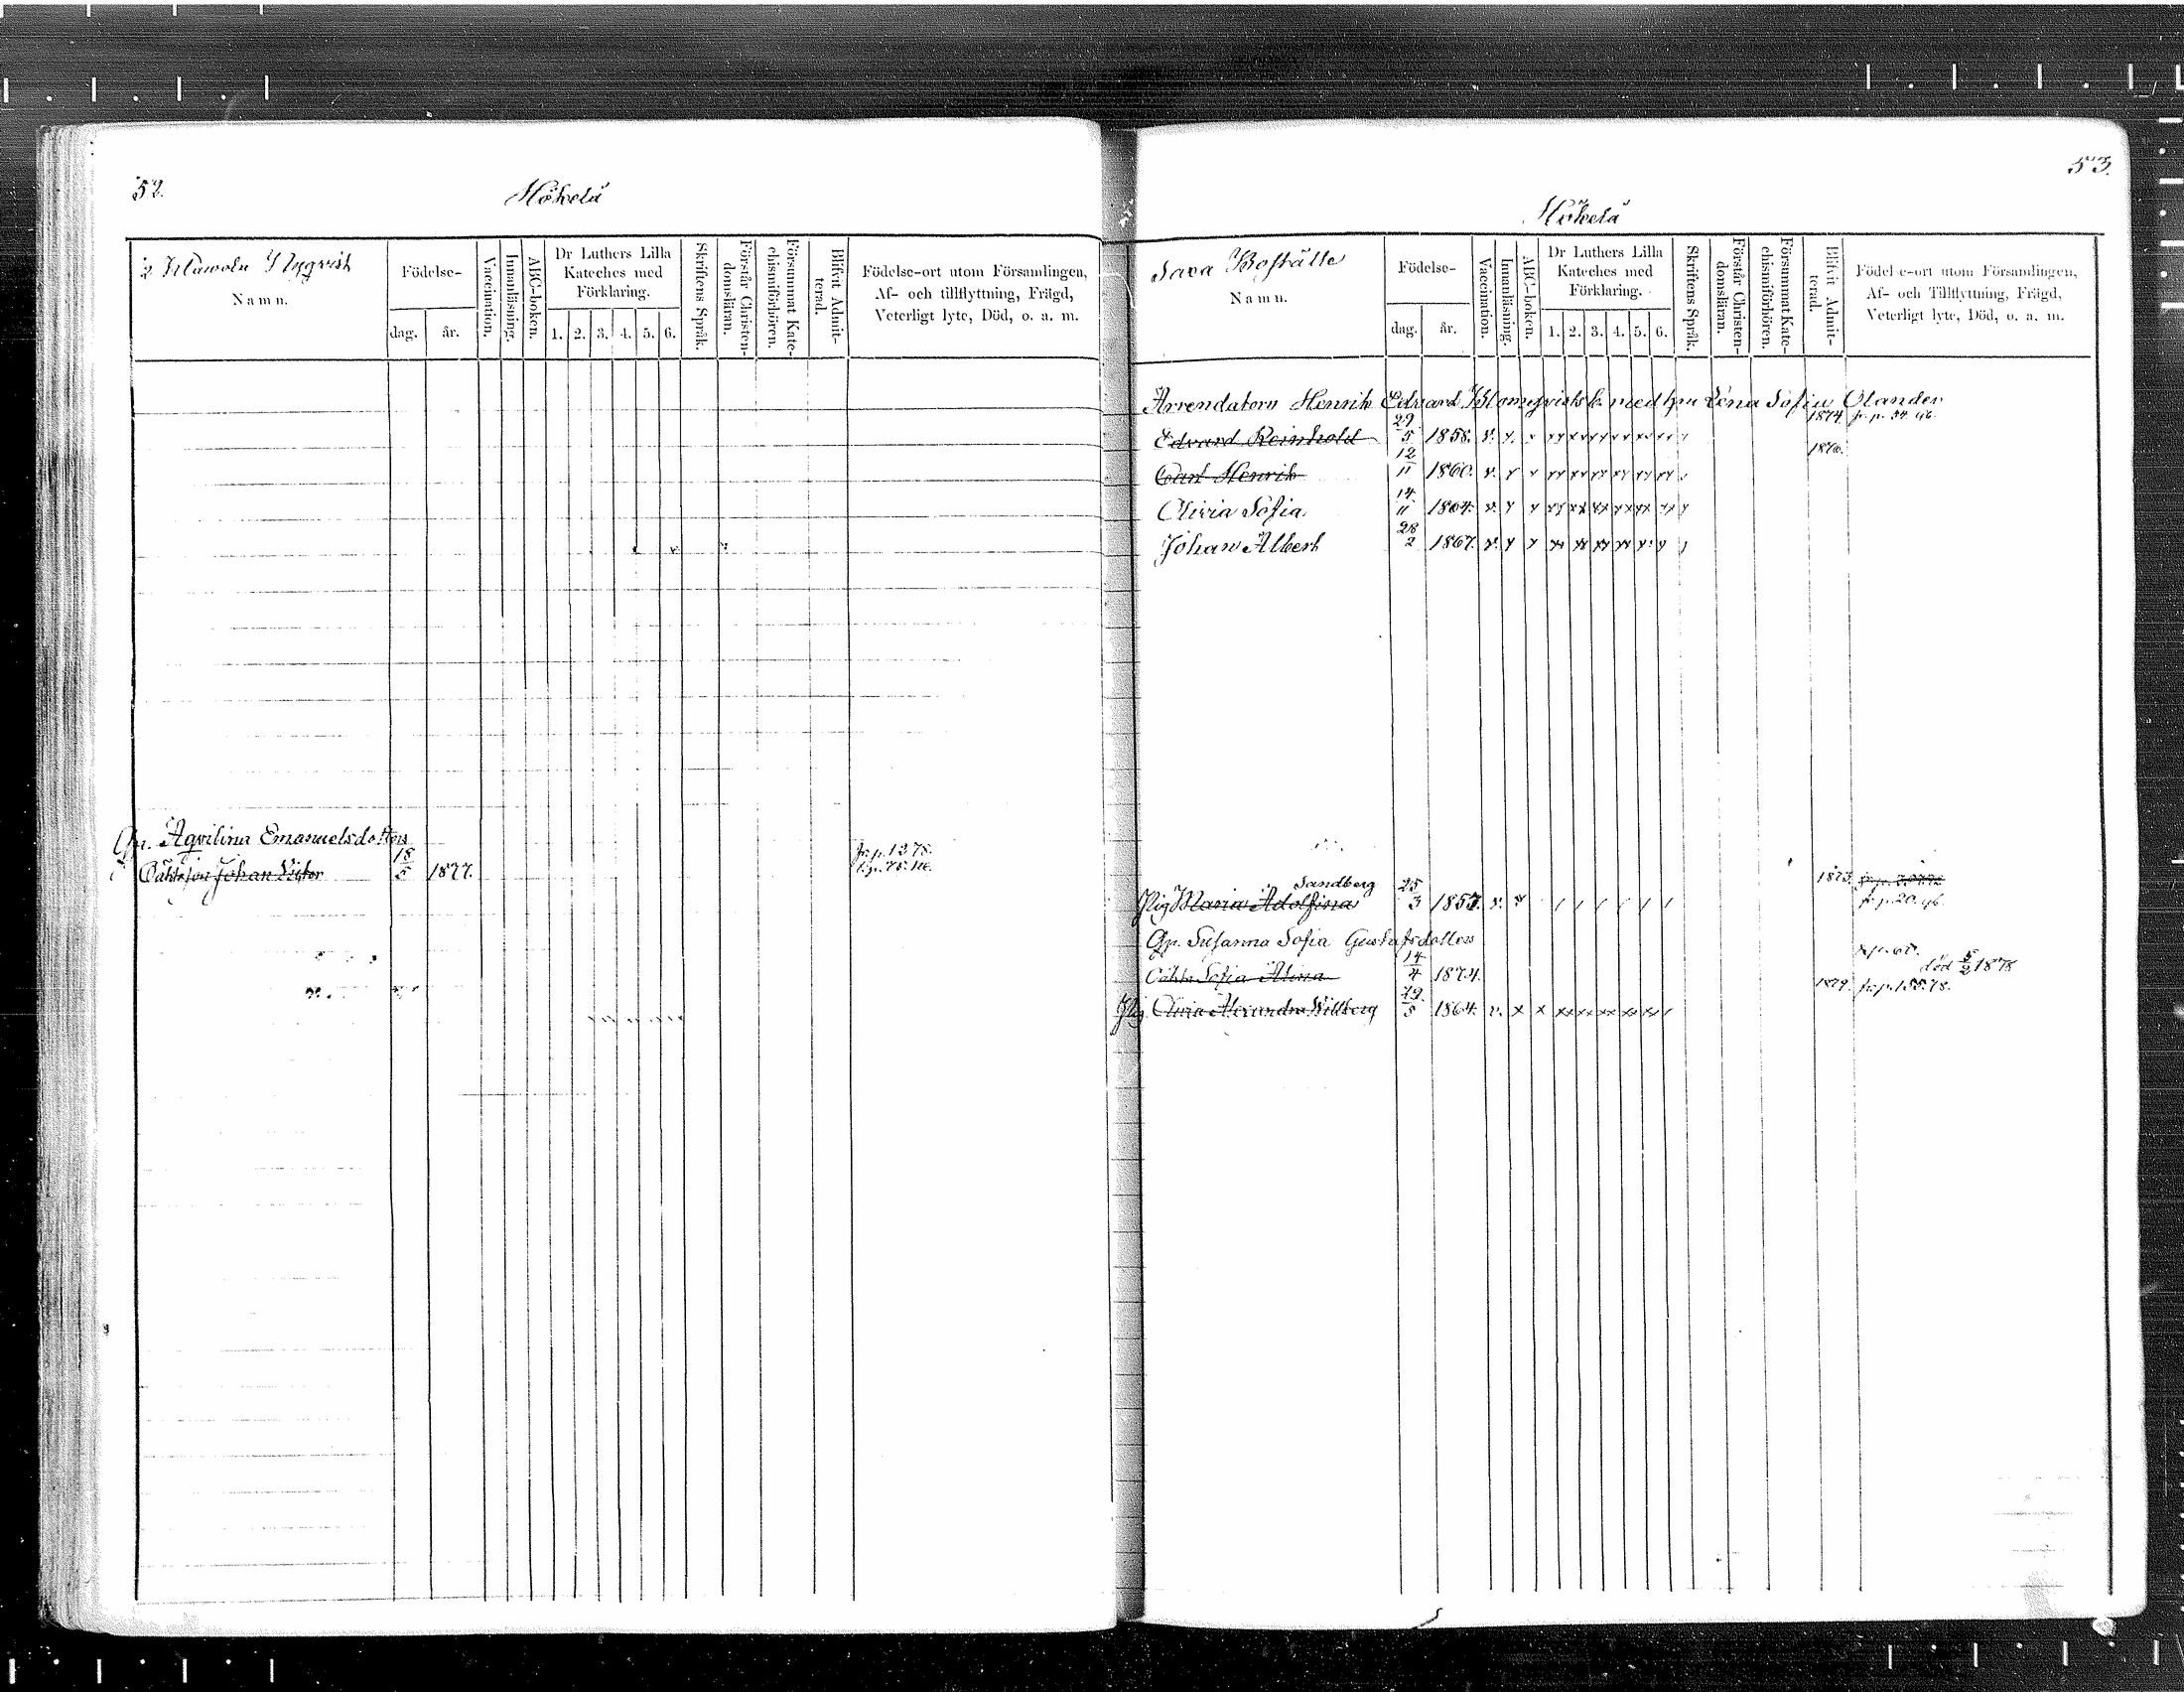 52.
Hökelä
Namn.
Födelse-
dag.
år.
Vaccination.
Innanläsning.
ABC-boken.
Dr Luthers Lilla
Kateches med
Förklaring.
1. 2. 3. 4. 5. 6.
Skriftens Språk.
Förstår Christen-
domsläran.
Försummat Kate-
chismiförhören.
Blifvit Admit-
terad.
Födelse-ort utom Församlingen,
Af- och tillflyttning, Frägd,
Veterligt lyte, Död, o. a. m.
Gp. Aqvilina Emanuelsdotters
fr. p. 12 78.
Oäkta son Johan Viktor 18/5 1877.
53.
Hökelä
Sava Boställe
Namn.
Födelse-
dag.
år.
Vaccination.
Innanläsning.
ABC-boken.
Dr Luthers Lilla
Kateches med
Förklaring.
1. 2. 3. 4. 5. 6.
Skriftens Språk.
Förstår Christen-
domsläran.
Försummat Kate-
chismiförhören.
Blifvit Admit-
terad.
Födelse-ort utom Församlingen,
Af- och Tillflyttning, Frägd,
Veterligt lyte, Död, o. a. m.
Arrendatorn Henrik Edvard Blomqvists b. med hu Lena Sofia Olander
Edvard Reinhold 29/5 1858. 1874.
Carl Henrik 12/11 1860. 1876.
Olivia Sofia 14/11 1864.
Johan Albert 28/2 1867.
Sandberg
Pig Maria Adolfina 25/3 1857. 1873.
Gp. Susanna Sofia Gustafsdotters
Oäkta Sofia Alina 14/4 1874. död 5/2 1878
Pig. Olivia Alexandra Willberg 29/5 1864. v. 1879. fr. p. 155. 78.